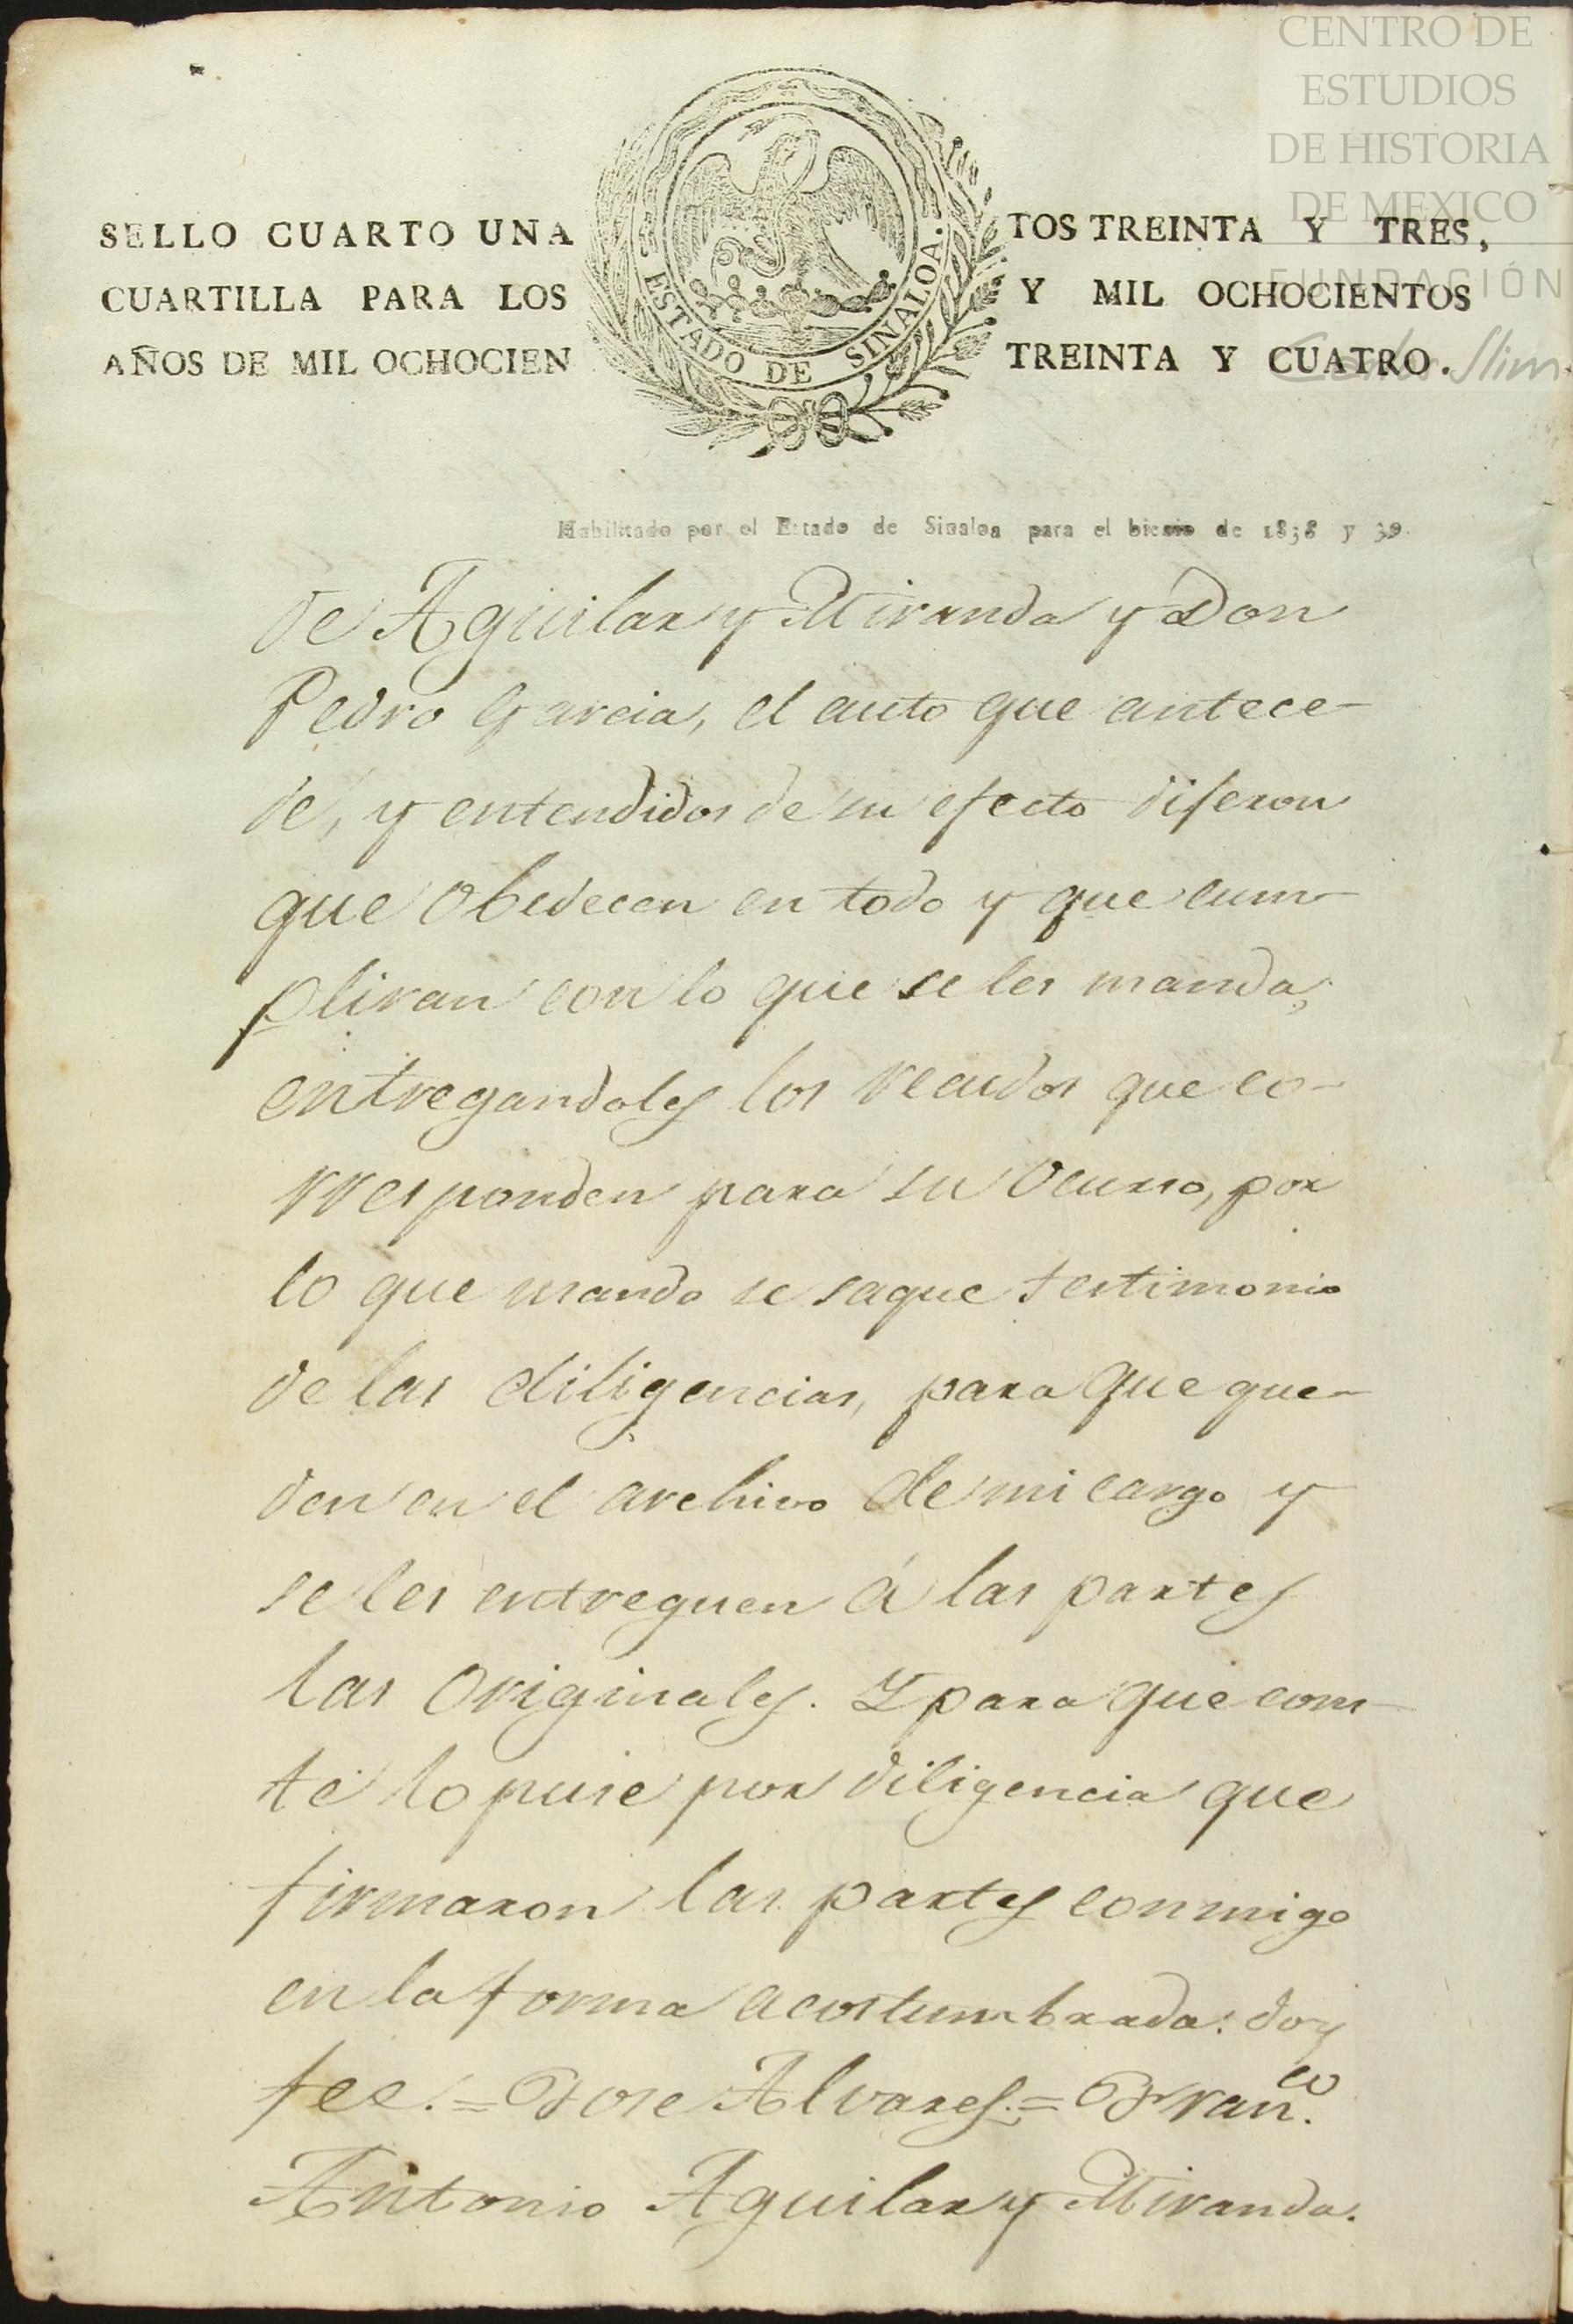 CENTRO DE
ESTUDIOS
DE HISTORIA
DE MEXICO
FUNDACIÓN
Carlos Slim
SELLO CUARTO UNA
CUARTILLA PARA LOS
AÑOS DE MIL OCHOCIEN
ESTADO DE SINALOA.
TOS TREINTA Y TRES,
Y MIL OCHOCIENTOS
TREINTA Y CUATRO.
Habilitado por el Estado de Sinaloa para el bienio de 1838 y 39.
de Aguilar y Miranda y Don
Pedro Garcia, el auto que antece-
de, y entendidos de su efecto diferon
que obedecen en todo y que cum-
pliran con lo que se les manda,
entregandoles los recudos que co-
rresponden para su ocurso, por
lo que mando se saque testimonio
de las diligencias, para que que-
den en el archivo de mi cargo y
se les entreguen á las partes
las originales. Y para que cons-
te lo puse por diligencia que
firmaron las partes conmigo
en la forma acostumbrada: doy
fee.=Jose Alvares.=Fran.co
Antonio Aguilar y Miranda.